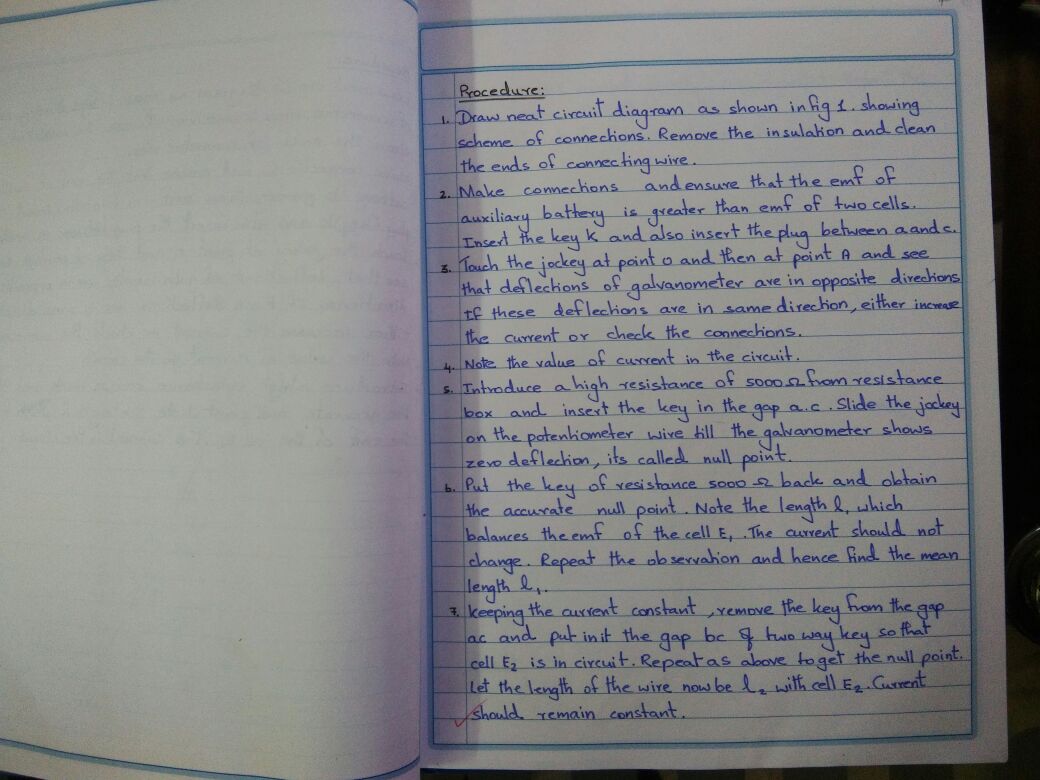 Procedure:
1. Draw neat circuit diagram as shown in fig 1. showing
scheme of connections. Remove the insulation and clean
the ends of connecting wire.
2. Make connections and ensure that the emf of
auxiliary battery is greater than emf of two cells.
Insert the key K and also insert the plug between a and c.
3. Touch the jockey at point o and then at point A and see
that deflections of galvanometer are in opposite directions
If these deflections are in same direction, either increase
the current or check the connections.
4. Note the value of current in the circuit.
5. Introduce a high resistance of 5000 Ω from resistance
box and insert the key in the gap a.c. Slide the jockey
on the potentiometer wire till the galvanometer shows
zero deflection, its called null point.
6. Put the key of resistance 5000 Ω back and obtain
the accurate null point. Note the length l₁ which
balances the emf of the cell E₁. The current should not
change. Repeat the observation and hence find the mean
length l₁.
7. keeping the current constant, remove the key from the gap
ac and put in it the gap bc of two way key so that
cell E₂ is in circuit. Repeat as above to get the null point.
Let the length of the wire now be l₂ with cell E₂. Current
should remain constant.